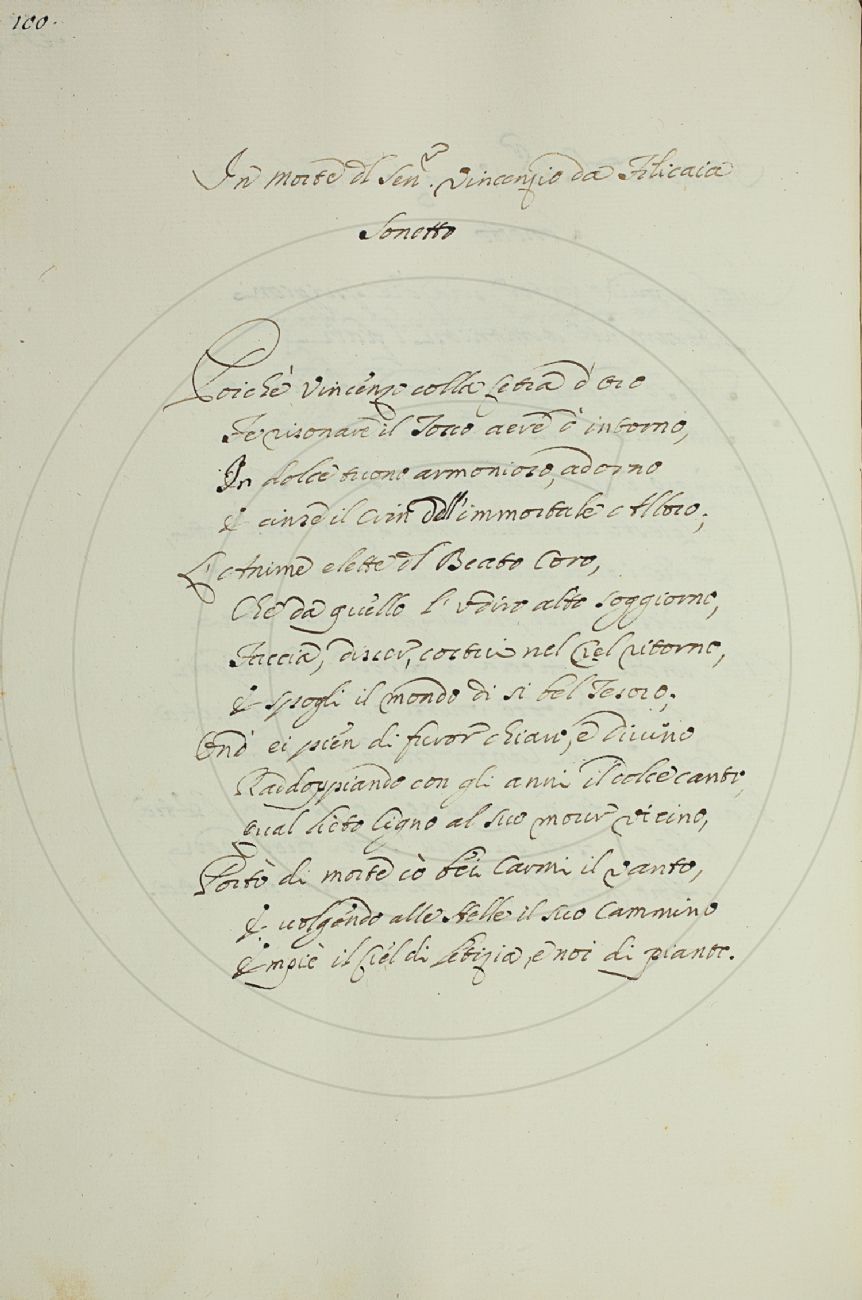 100.
In Morte dl Sen.r Vincenzio da Filicaia
Sonetto
Poichè Vincenzo colla Cetra d'oro
Fe risonare il Tosco aere d'intorno,
In dolce tuono armonioso, adorno
E cinse il Crin dell'immortale Alloro;
L'Anime elette dl Beato Coro,
Che da quello l'udiro alto soggiorno,
Faccia, disser, costui nel Ciel ritorno,
E spogli il mondo di sì bel Tesoro;
Ond' ei pien di furor chiaro, e divino
Raddoppiando con gli anni il dolce canto,
Qual lieto Cigno al suo morir vicino,
Portò di morte co bei Carmi il vanto,
E volgendo alle stelle il suo Cammino
Empiè il Ciel di letizia, e noi di pianto.